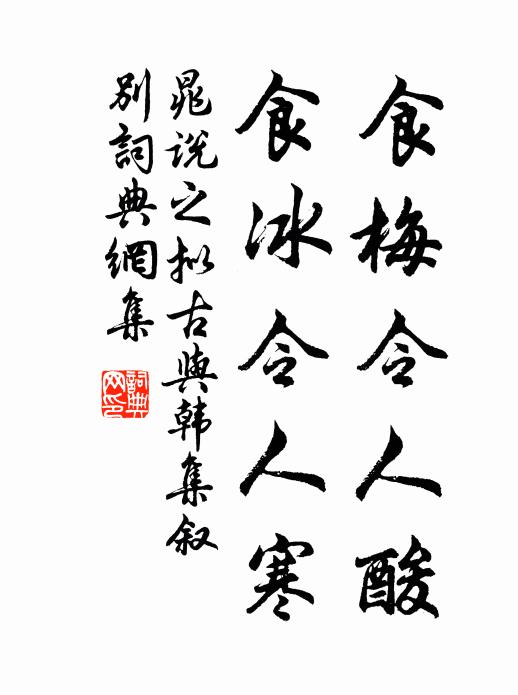 食梅令人酸
食冰令人寒
晁说之拟古與韩集叙
别詞典網集
詞典
网印